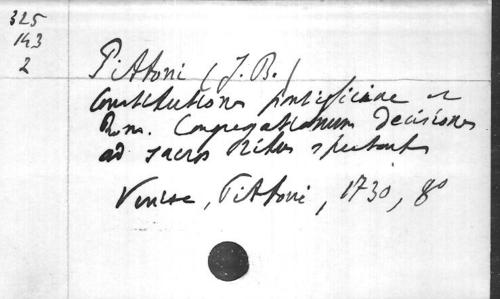 325
143
2
Pittoni (J. B.)
Constitutiones pontificiae et
Rom. Congregationum decisiones
ad sacros ritus spectantes
Venise, Pittoni, 1730, 8º